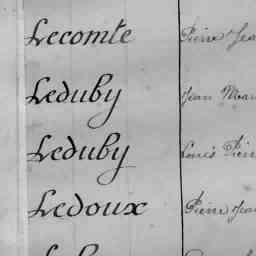 Lecomte Pierre Jea
Leduby Jean Mar
Leduby Louis Pier
Ledoux Pierre Jea